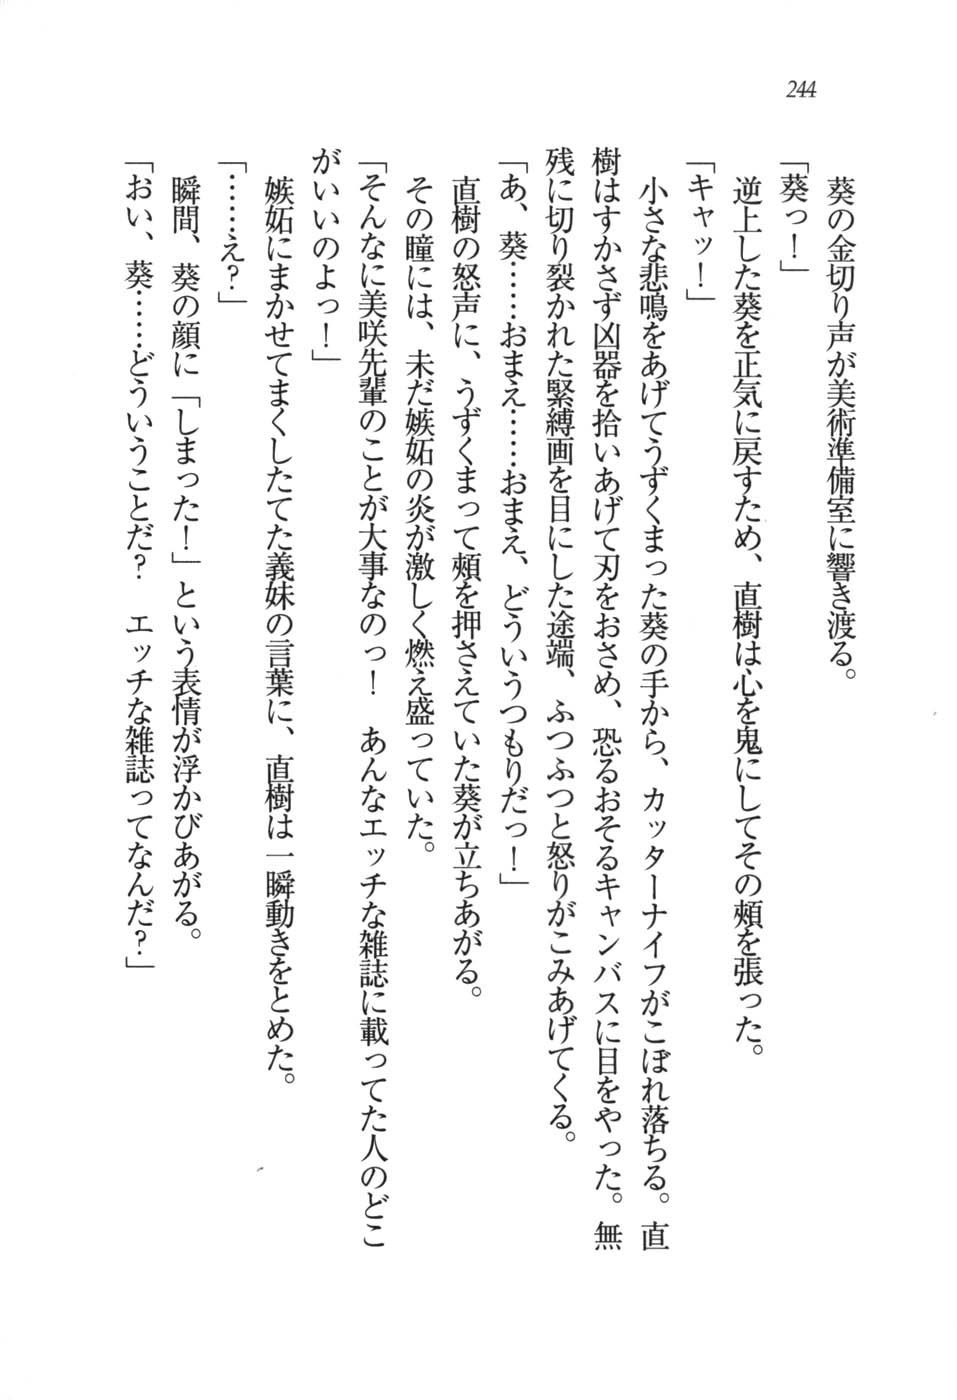 244
葵の金切り声が美術準備室に響き渡る。
「葵っ！」
逆上した葵を正気に戻すため、直樹は心を鬼にしてその頰を張った。
「キャッ！」
小さな悲鳴をあげてうずくまった葵の手から、カッターナイフがこぼれ落ちる。直
樹はすかさず凶器を拾いあげて刃をおさめ、恐るおそるキャンバスに目をやった。無
残に切り裂かれた緊縛画を目にした途端、ふつふつと怒りがこみあげてくる。
「あ、葵……おまえ……おまえ、どういうつもりだっ！」
直樹の怒声に、うずくまって頰を押さえていた葵が立ちあがる。
その瞳には、未だ嫉妬の炎が激しく燃え盛っていた。
「そんなに美咲先輩のことが大事なのっ！　あんなエッチな雑誌に載ってた人のどこ
がいいのよっ！」
嫉妬にまかせてまくしたてた義妹の言葉に、直樹は一瞬動きをとめた。
「……え？」
瞬間、葵の顔に「しまった！」という表情が浮かびあがる。
「おい、葵……どういうことだ？　エッチな雑誌ってなんだ？」